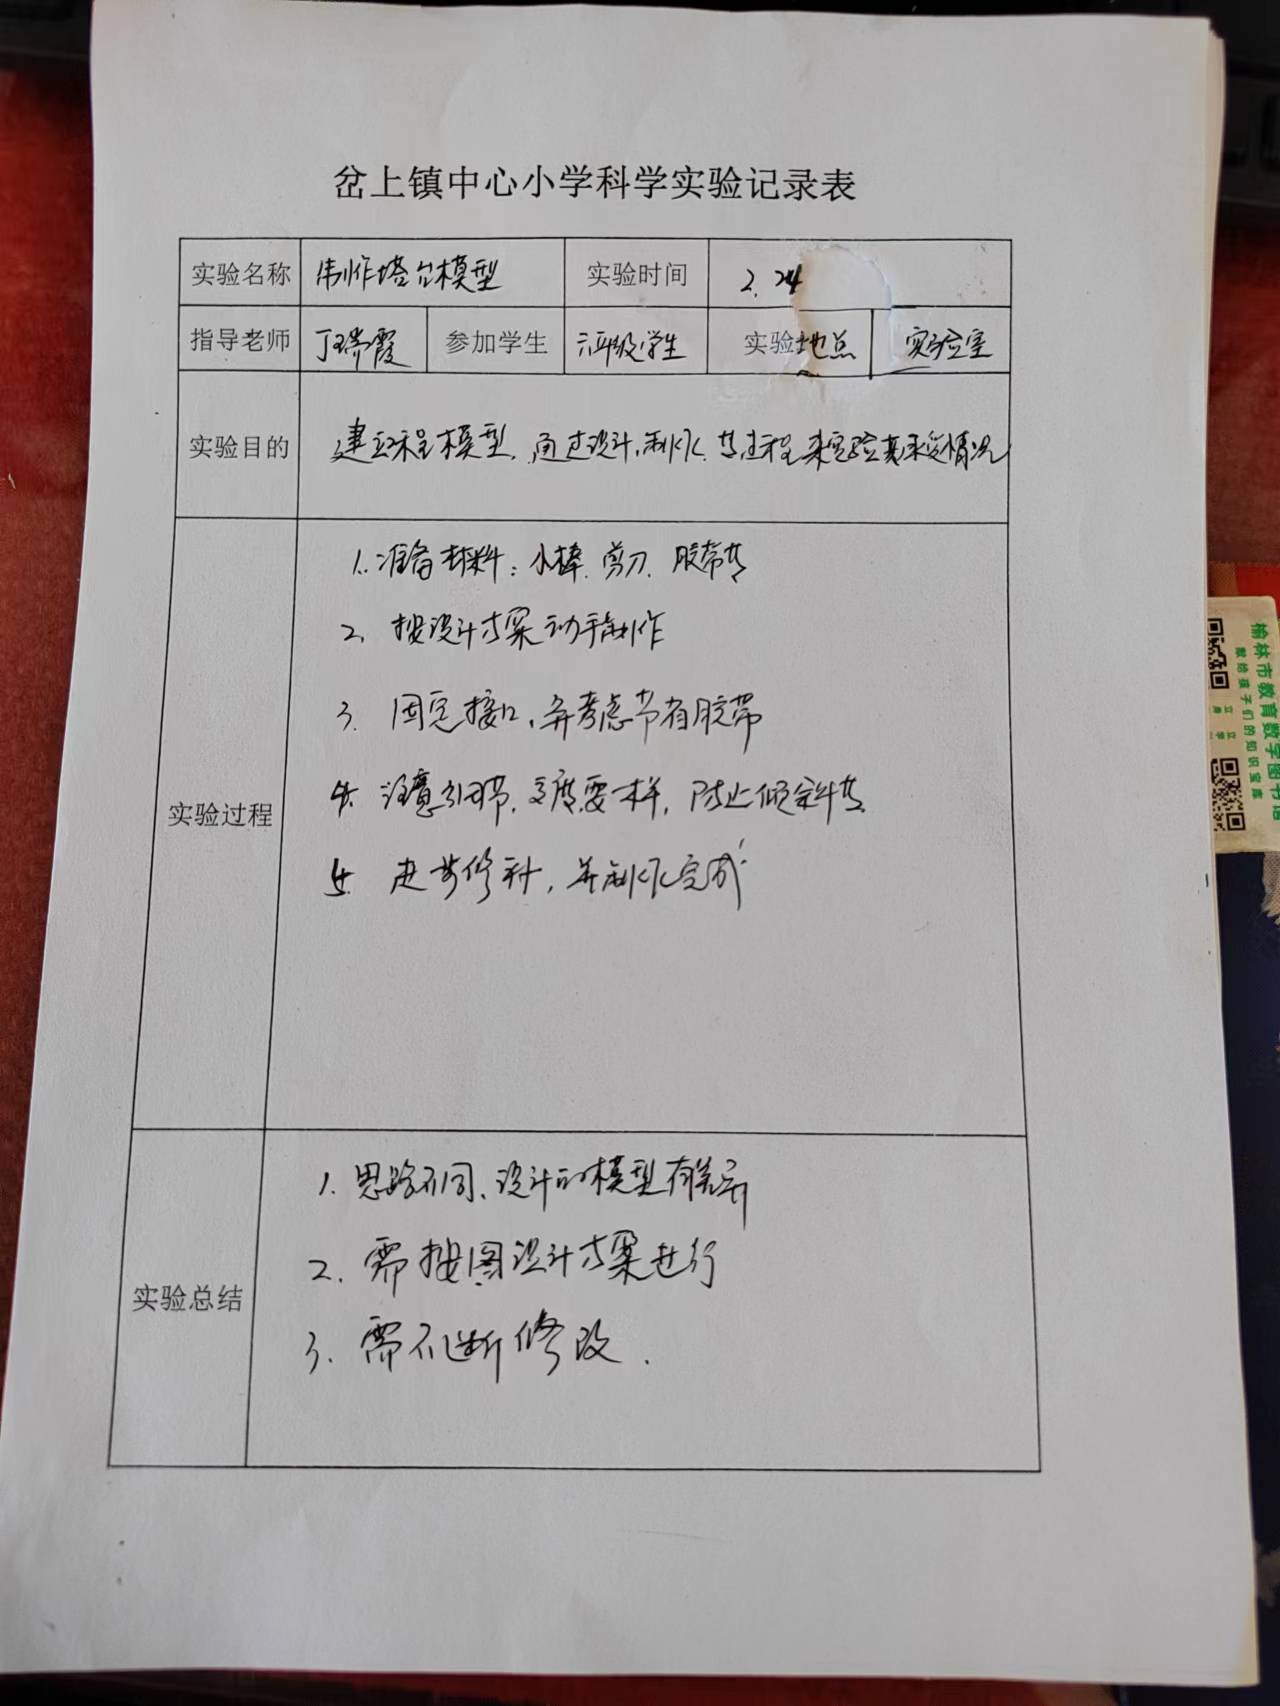 岔上镇中心小学科学实验记录表
实验名称 制作塔台模型 实验时间 2.24
指导老师 丁瑞霞 参加学生 六年级学生 实验地点 实验室
实验目的 建立工程模型,通过设计,制作等过程来实验其承受情况
实验过程
1. 准备材料:小棒.剪刀.胶带等
2. 按设计方案动手制作
3. 固定接口,并考虑节省胶带
4. 注意细节,支座要一样,防止倾斜等
5. 进步修补,并制作完成
实验总结
1. 思路不同、设计的模型有差异
2. 需按图设计方案进行
3. 需不断修改.
榆林市教育数字图书馆
献给孩子们的知识宝库